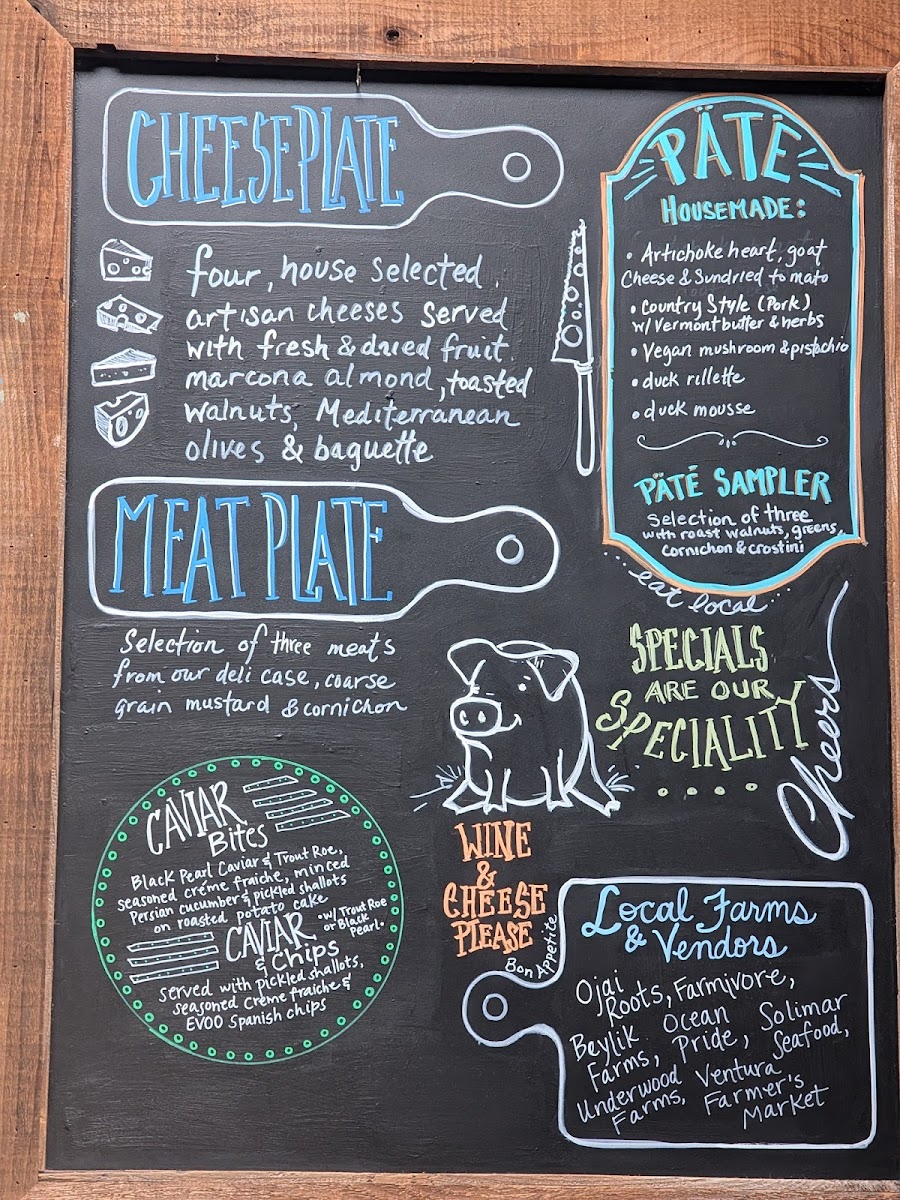 CHEESE PLATE
four, house selected,
artisan cheeses served
with fresh & dried fruit
marcona almond, toasted
walnuts, Mediterranean
olives & baguette
MEAT PLATE
Selection of three meats
from our deli case, coarse
grain mustard & cornichon
CAVIAR
Bites
Black Pearl Caviar & Trout Roe,
seasoned créme fraiche, minced
Persian cucumber & pickled shallots
on roasted potato cake
CAVIAR
& Chips
• w/ Trout Roe
or Black
Pearl •
served with pickled shallots,
seasoned Créme fraiche &
EVOO Spanish chips
PÄTÉ
HOUSEMADE:
• Artichoke heart, goat
Cheese & Sundried tomato
• Country Style (Pork)
w/ Vermont butter & herbs
• Vegan mushroom & pistachio
• duck rillette
• duck mousse
PÄTÉ SAMPLER
selection of three
with roast walnuts, greens,
cornichon & crostini
...eat local...
SPECIALS
ARE OUR
SPECIALITY
Cheers
WINE
&
CHEESE
PLEASE
Bon Appetite
Local Farms
& Vendors
Ojai
Roots, Farmivore,
Beylik Ocean Solimar
Farms, Pride, Seafood,
Underwood Ventura
Farms, Farmer's
Market